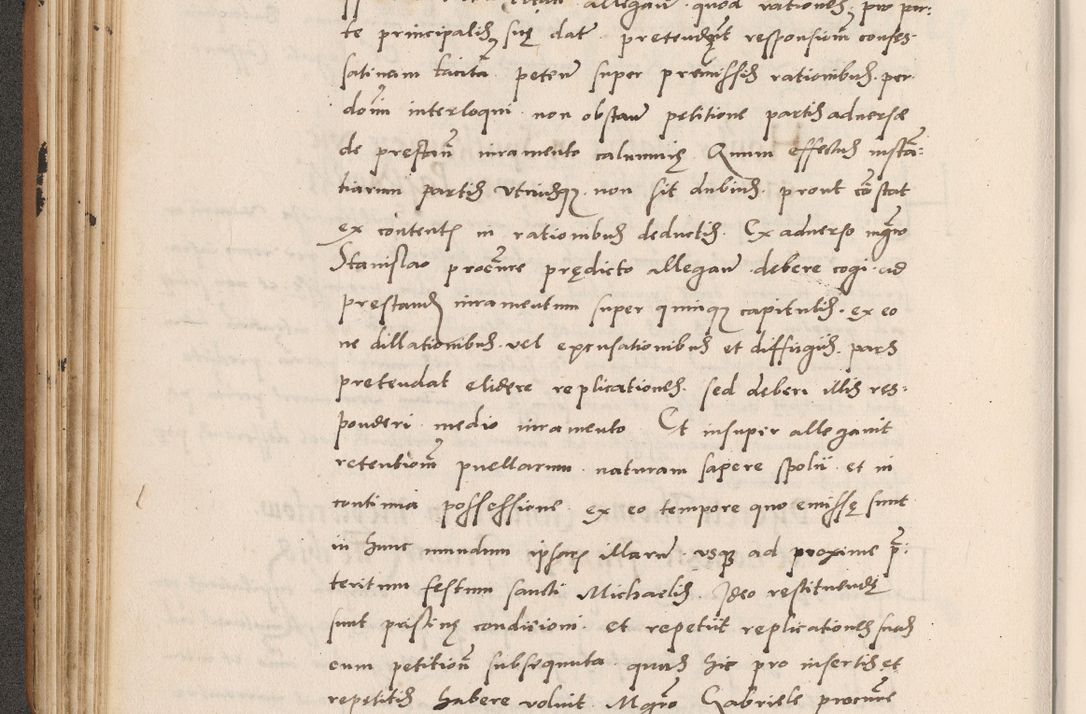 allegan̄ quod rationes pro par:
te principalis suę dat pretendit responsium confes-
satinam tacitā peten̄ super premissis rationibus per
domi interloqui non obstan̄ petitione partis adversæ
de prestan̄ iuramento calumnię Quum effectus instā:
tiarum partis utriusque non sit dubius prout cōstat
ex contentis in rationibus deductis. Ex adverso mgro
Stanislao procure prędicto allegan̄ debere cogi ad
prestand iuramentum super quinque capitulis. ex eo
ne dillationibus vel excusationibus et diffugiis pars
pretendat elidere replicationes. sed deberi illis res-
ponderi medio iuramento Et insuper allegavit
retentionē puellarum naturam sapere spolii et in
continia possessione ex eo tempore quo emissę sunt
in hunc mundum ipsarum illarum usque ad proxime p̄-
teritum festum sancti Michaelis. Ideo restituendę
sunt pristinę condicioni et repetiit replicationes suas
cum petitionē subsequuta quas hic pro insertis et
repetitis habere voluit. Mgro Gabriele procure